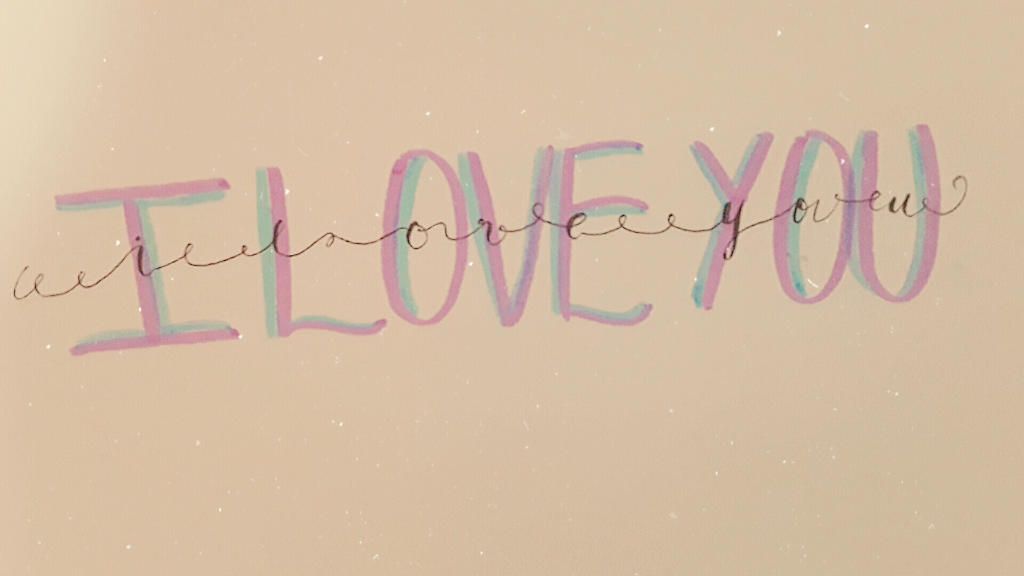 I LOVE YOU
i love you